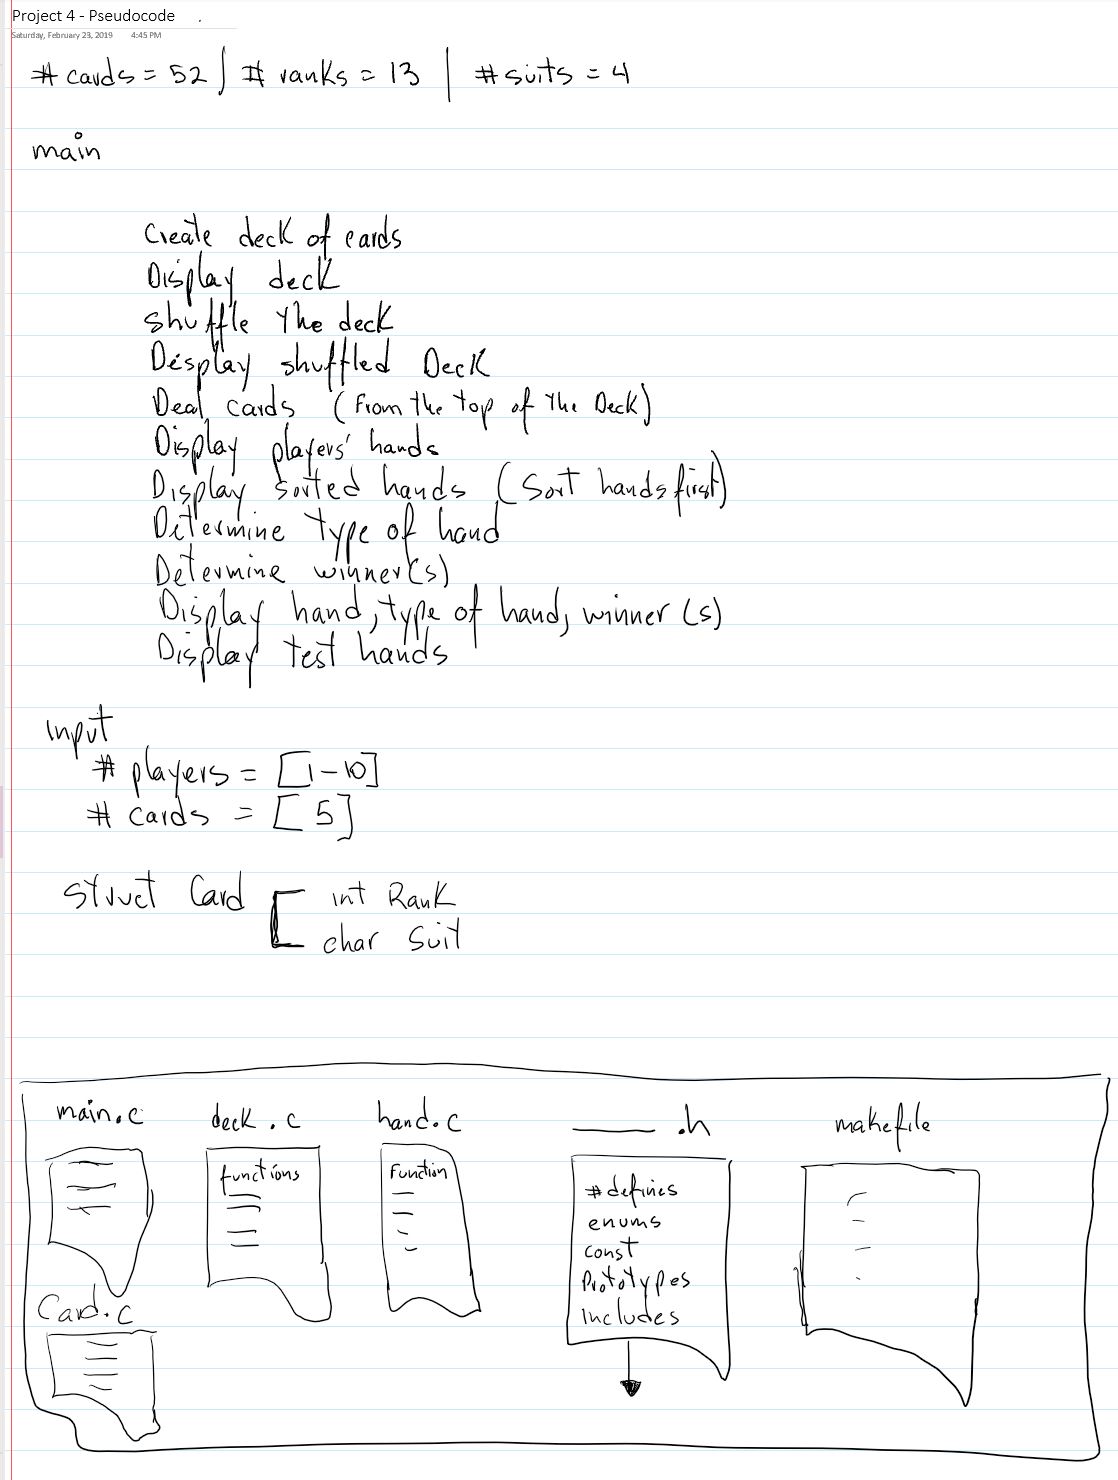 Project 4 - Pseudocode
Saturday, February 23, 2019 4:45 PM
# cards = 52 | # ranks = 13 | # suits = 4
main
Create deck of cards
Display deck
shuffle the deck
Display shuffled Deck
Deal cards (from the top of the Deck)
Display players' hands
Display sorted hands (Sort hands first)
Determine type of hand
Determine winner(s)
Display hand, type of hand, winner(s)
Display test hands
input
# players = [1-10]
# cards = [5]
struct Card [ int Rank
char Suit
main.c deck.c hand.c ____ .h makefile
functions
Function
#defines
enums
const
Prototypes
includes
Card.c